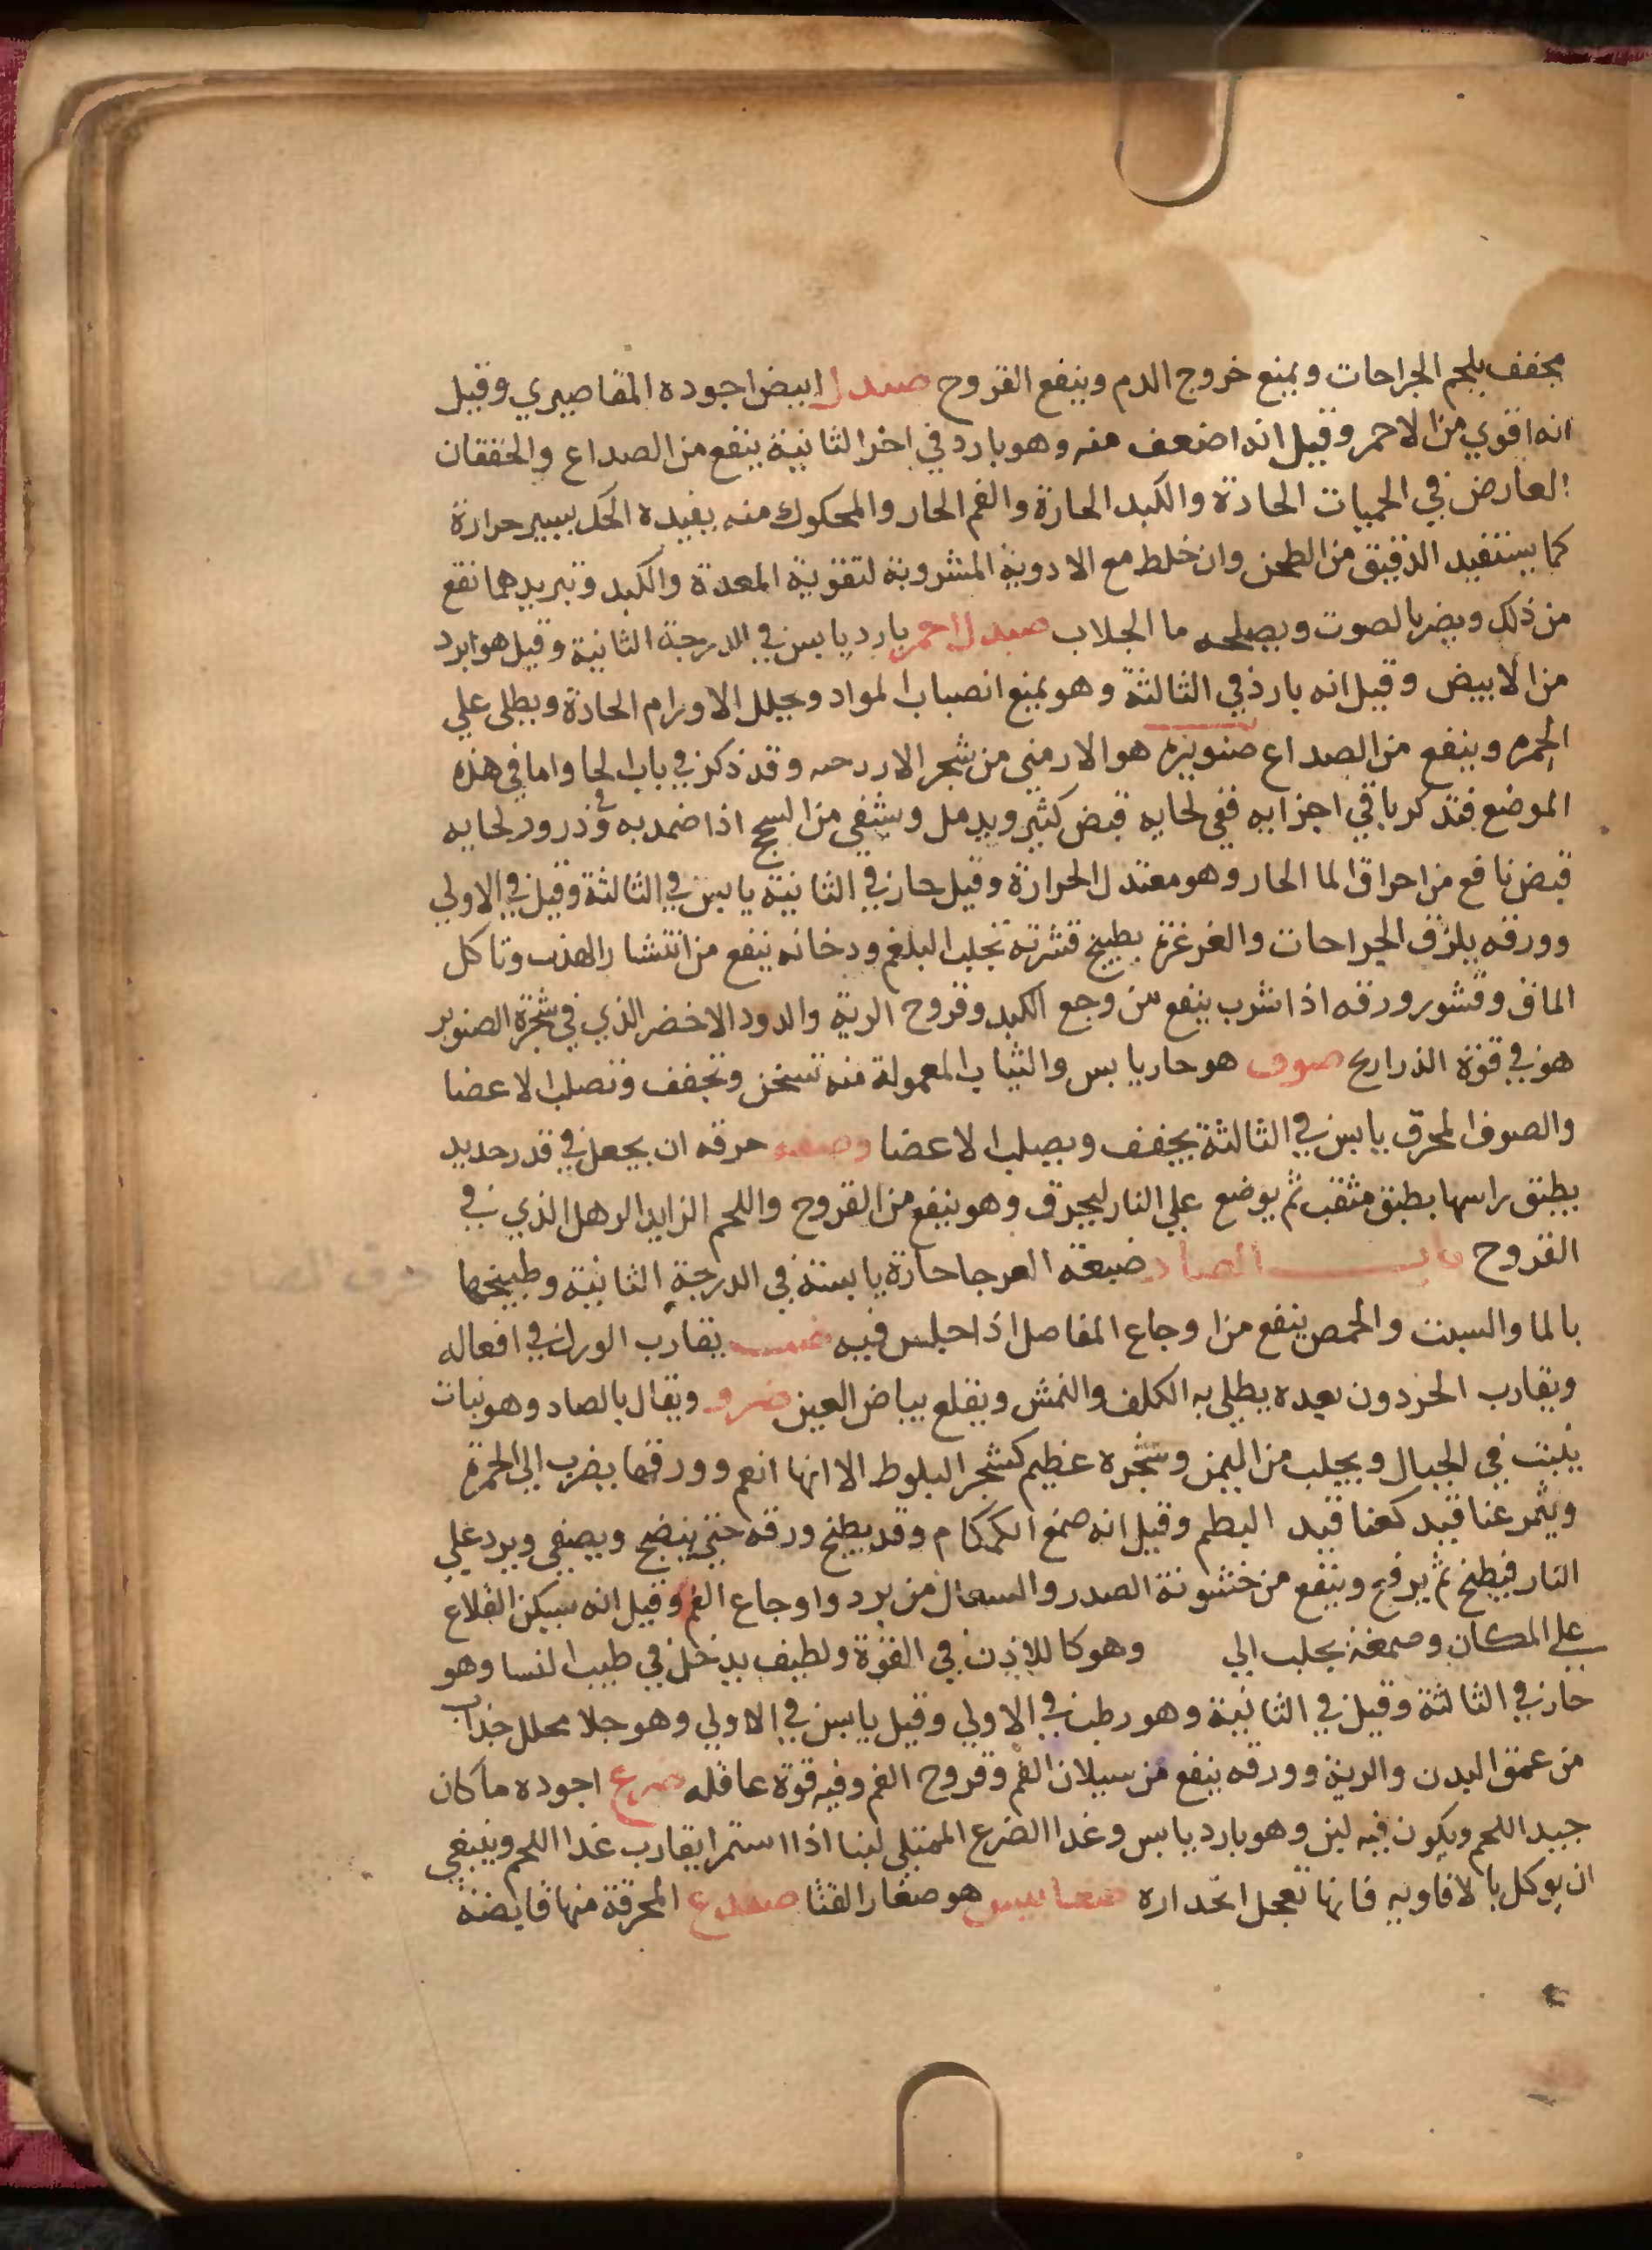 مجفف يلحم الجراحات ويمنع خروج الدم وينفع القروح صندل ابيض اجوده المقاصيري وقيل
انه اقوي من الاحمر وقيل انه اضعف منه وهو بارد في اخر الثانية ينفع من الصداع والخفقان
العارض في الحميات الحادة والكبد الحارة والفم الحار والمحكوك منه يفيده الحك يسير حرارة
كما يستفيد الدقيق من الطحن وان خلط مع الادوية المشروبة لتقوية المعدة والكبد وتبريدهما نفع
من ذلك ويضر بالصوت ويصلحه ما الجلاب صندل احمر بارد يابس في الدرجة الثانية وقيل هو ابرد
من الابيض وقيل انه بارد في الثالثة وهو يمنع انصباب المواد ويحلل الاورام الحادة ويطلي علي
الحمره وينفع من الصداع صنوبره هو الارمني من شجر الارز وقد ذكر في باب الحا واما في هذه
الموضع فنذكر باقي اجزايه ففي لحايه قبض كثير ويدمل وشفي من السحج اذا ضمد به وفي ذرور لحايه
قبض نافع من احراق الما الحار وهو معتدل الحرارة وقيل حار في الثانية يابس في الثالثة وقيل في الاولي
وورقه يلزق الجراحات والغرغرة بطبيخ قشرته تجلب البلغم ودخانه ينفع من انتشار الهدب وتاكل
الماق وقشور ورقه اذا شرب ينفع من وجع الكبد وقروح الرية والدود الاخضر الذي في شجرة الصنوبر
هو في قوة الذراريح صوف هو حار يابس والثياب المعمولة منه تسخن وتجفف وتصلب الاعضا
والصوف المحرق يابس في الثالثة يجفف ويصلب الاعضا وصفه حرقه ان يجعل في قدر حديد
يطبق راسها بطبق مثقب ثم يوضع علي النار ليحرق وهو ينفع من القروح واللحم الزايد الرهل الذي في
القروح باب الضاد ضبعة العرجا حارة يابسة في الدرجة الثانية وطبيخها
بالما والسبت والحمص ينفع من اوجاع المفاصل اذا جلس فيه ضب يقارب الورل في افعاله
ويقارب الحردون بعده يطلي به الكلف والنمش ويقلع بياض العين ضرو ويقال بالصاد وهو نبات
ينبت في الجبال ويجلب من اليمن وشجره عظيم كشجر البلوط الا انها انعم وورقها يضرب الي الحمرة
ويثمر عناقيد كعناقيد البطم وقيل انه صمغ الكمكام وقد يطبخ ورقه حتي ينضج ويصفي ويرد علي
النار فيطبخ ثم يرفع وينفع من خشونة الصدر والسعال من برد واوجاع الفم وقيل انه يسكن القلاع
علي المكان وصمغه يجلب الي وهو كاللاذن في القوة ولطيف يدخل في طيب النسا وهو
حار في الثالثة وقيل في الثانية وهو رطب في الاولي وقيل يابس في الاولي وهو جلا محلل جذاب
من عمق البدن والرية وورقه ينفع من سيلان الفم وقروح الفم وفيه قوة عاقله ضرع اجوده ما كان
جيد اللحم ويكون فيه لبن وهو بارد يابس وغدا الضرع الممتلي لبنا اذا استمرا يقارب غدا اللحم وينبغي
ان يوكل بالافاويه فانها تعجل انحداره ضغابيس هو صغار القثا ضفدع المحرقة منها قابضة